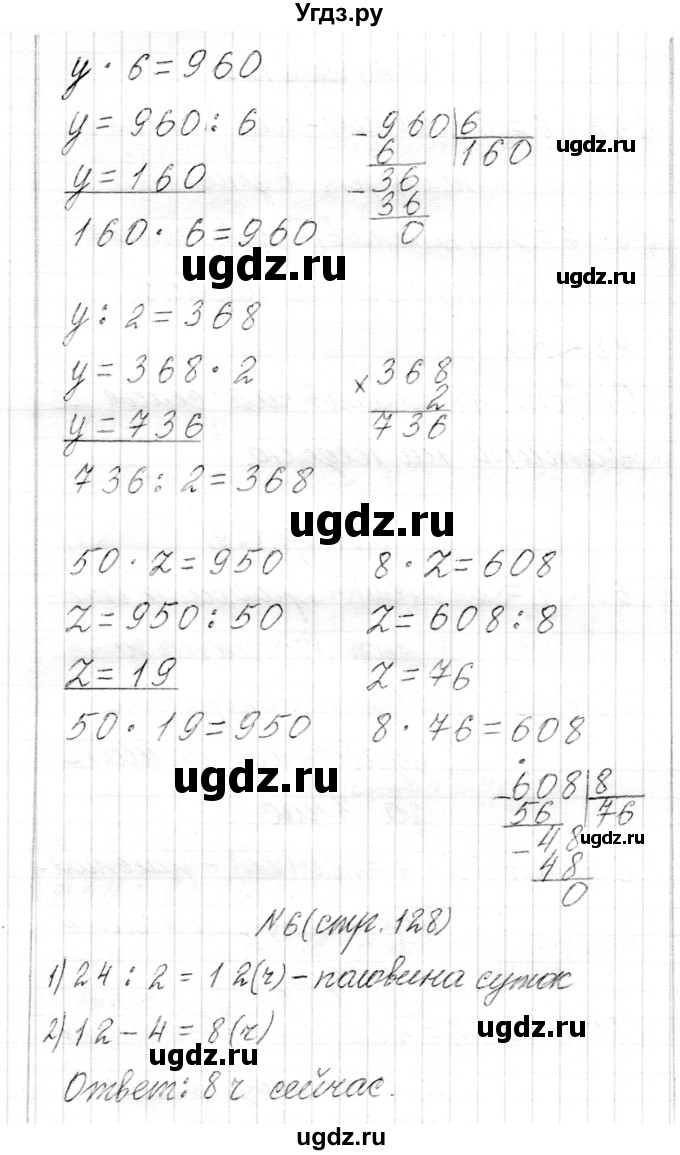 Угдз.ру
y · 6 = 960
y = 960 : 6
y = 160
160 · 6 = 960
- 960 | 6
6 160
- 36
36
0
ugdz.ru
ugdz.ru
ugdz.ru
y : 2 = 368
y = 368 · 2
y = 736
736 : 2 = 368
× 368
2
736
ugdz.ru
50 · z = 950
z = 950 : 50
z = 19
50 · 19 = 950
8 · z = 608
z = 608 : 8
z = 76
8 · 76 = 608
ugdz.ru
- 608 | 8
56 76
- 48
48
0
ugdz.ru
№6 (стр. 128)
1) 24 : 2 = 12 (ч) – половина суток
2) 12 – 4 = 8 (ч)
ugdz.ru
ugdz.ru
Ответ: 8 ч сейчас.
ugdz.ru